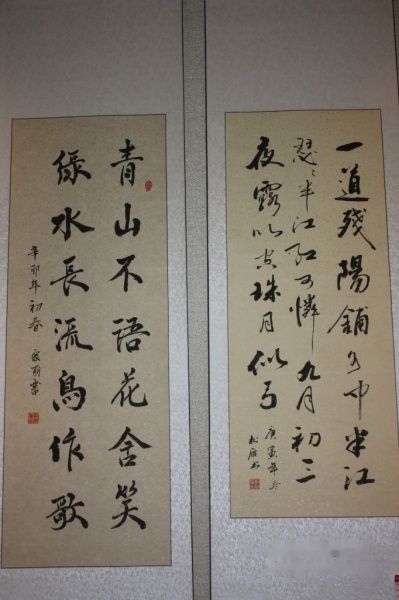 一道殘陽鋪水中半江
瑟〻半江红可憐九月初三
夜露似真珠月似弓
庚寅年冬
青山不語花含笑
綠水長流鳥作歌
辛卯年初春